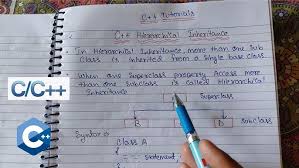 C++ Tutorials
C++ Hierarchical Inheritance
In Hierarchical Inheritance, more than one Sub
Class is inherited from a single base class.
When one Superclass property Access more
than one Subclass is called Hierarchical
Inheritance
Superclass
B
D
Subclass
Syntax
Class A
{
statement
C/C++
C++